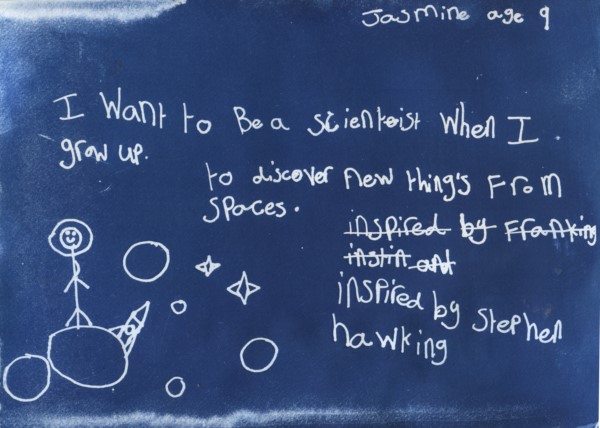 Jasmine age 9
I Want to Be a scienteist When I
grow up.
to discover new thing's From
spaces.
inspired by Ffranking
instin ant
inspired by Stephen
hawking